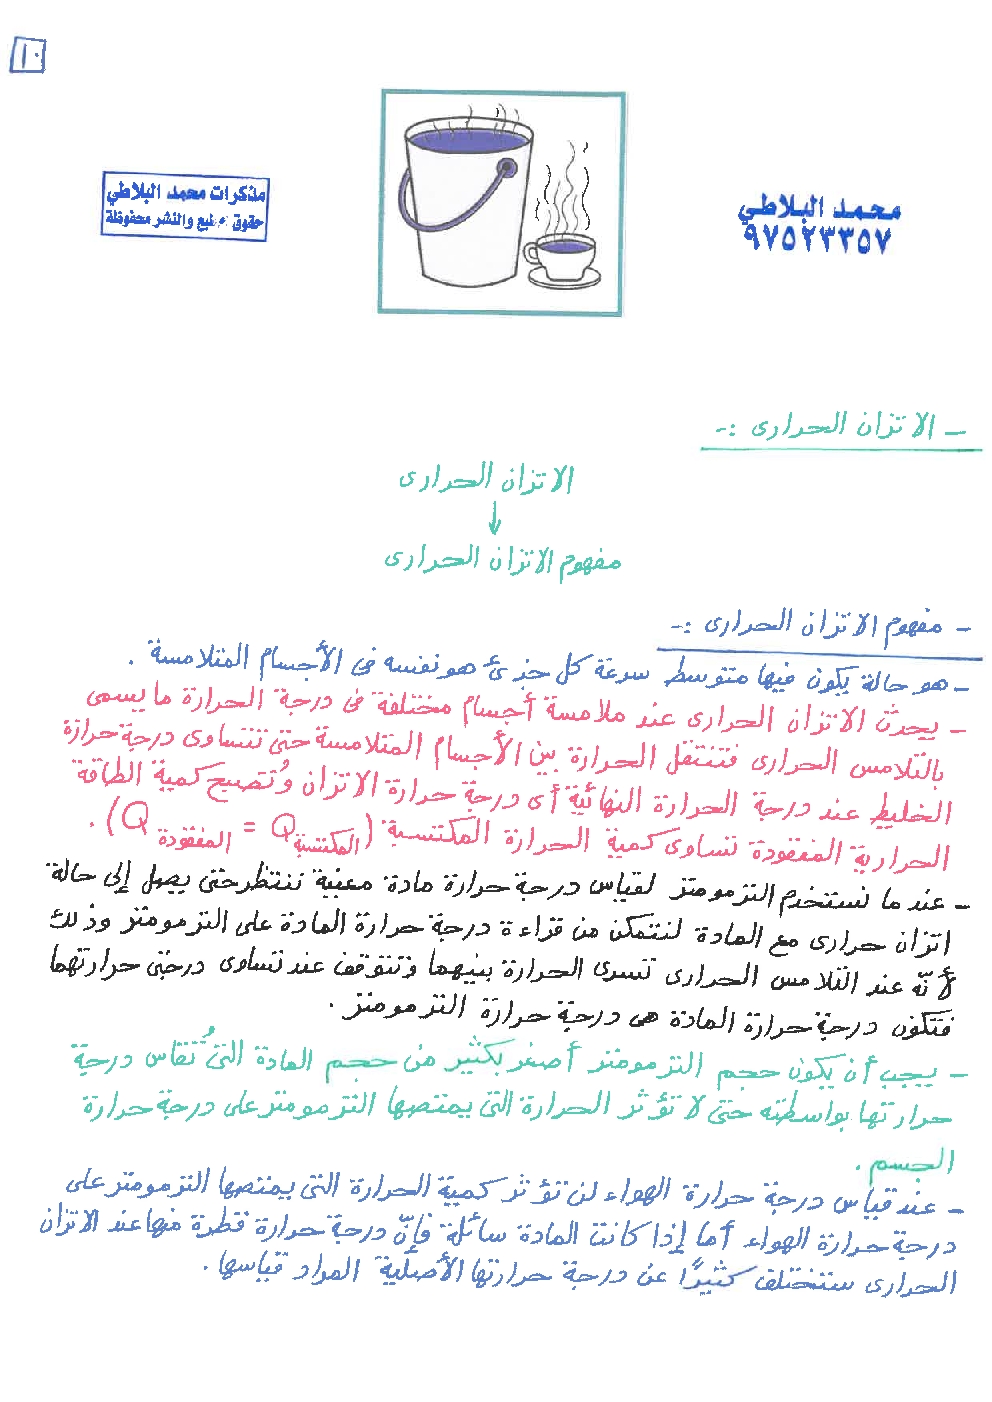 ١٠
مذكرات محمد البلاطي
حقوق الطبع والنشر محفوظة
محمد البلاطي
٩٧٥٢٣٣٥٧
- الاتزان الحرارى :-
الاتزان الحرارى
↓
مفهوم الاتزان الحرارى
- مفهوم الاتزان الحرارى :-
- هو حالة يكون فيها متوسط سرعة كل جزئ هو نفسه فى الأجسام المتلامسة .
- يحدث الاتزان الحرارى عند ملامسة أجسام مختلفة فى درجة الحرارة ما يسمى
بالتلامس الحرارى فتنتقل الحرارة بين الأجسام المتلامسة حتى تتساوى درجة حرارة
الخليط عند درجة الحرارة النهائية أى درجة حرارة الاتزان وتُصبح كمية الطاقة
الحرارية المفقودة تساوى كمية الحرارة المكتسبة (Q المكتسبة = Q المفقودة) .
- عند ما نستخدم الترمومتر لقياس درجة حرارة مادة معينة ننتظر حتى يصل إلى حالة
اتزان حرارى مع المادة لنتمكن من قراءة درجة حرارة المادة على الترمومتر وذلك
لأنّه عند التلامس الحرارى تسرى الحرارة بينهما وتتوقف عند تساوى درجتى حرارتهما
فتكون درجة حرارة المادة هى درجة حرارة الترمومتر .
- يجب أن يكون حجم الترمومتر أصغر بكثير من حجم المادة التى تُقاس درجة
حرارتها بواسطته حتى لا تؤثر الحرارة التى يمتصها الترمومتر على درجة حرارة
الجسم .
- عند قياس درجة حرارة الهواء لن تؤثر كمية الحرارة التى يمتصها الترمومتر على
درجة حرارة الهواء أما إذا كانت المادة سائلة فإنّ درجة حرارة قطرة منها عند الاتزان
الحرارى ستختلف كثيرًا عن درجة حرارتها الأصلية المراد قياسها .